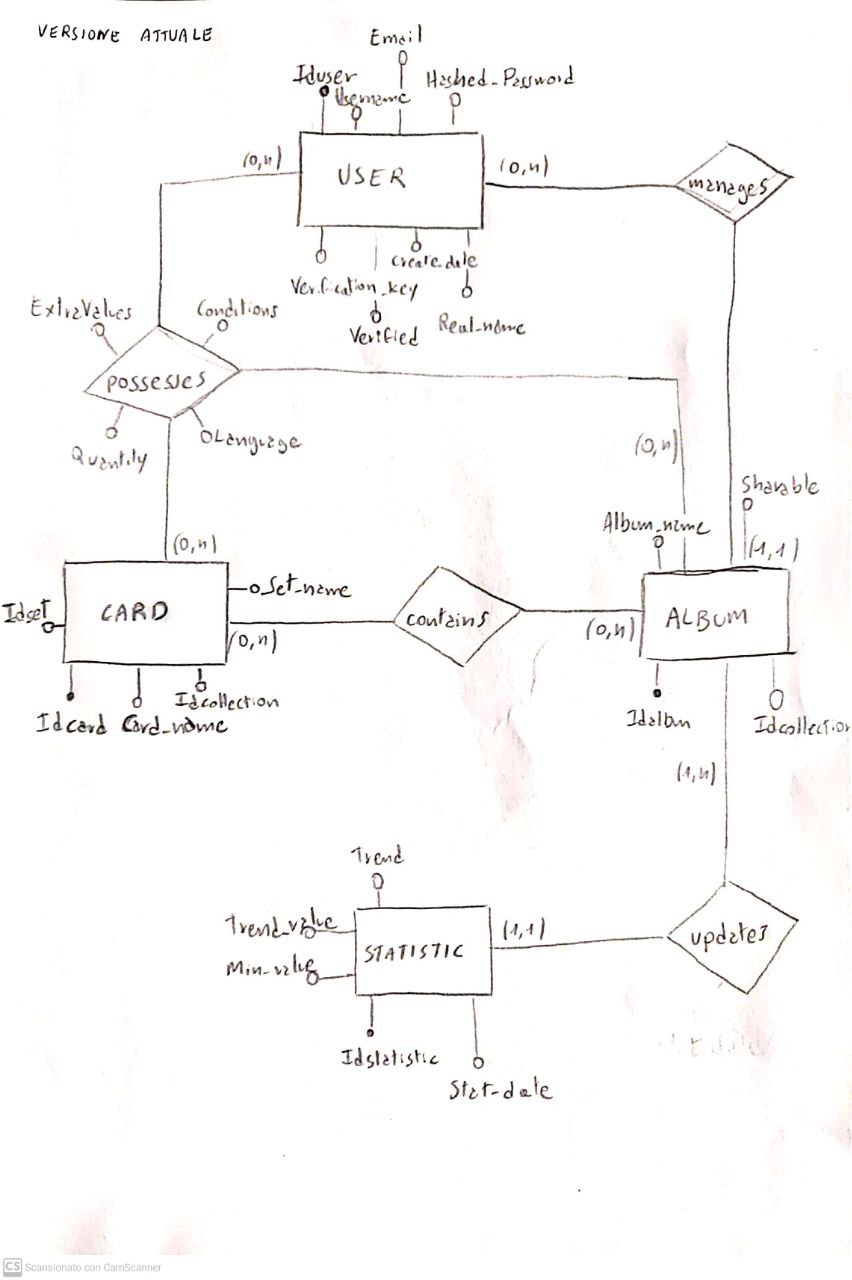 VERSIONE ATTUALE
Email
Iduser
Username
Hashed_Password
(0,n)
USER
(0,n)
manages
Verification_key
create_date
Verified
Real_name
ExtraValues
Conditions
possesses
Quantity
Language
(0,n)
Sharable
Album_name
(1,1)
(0,n)
Set_name
Idset
CARD
contains
ALBUM
(0,n)
(0,n)
Idcard
Card_name
Idcollection
Idalbum
Idcollection
(1,n)
Trend
Trend_value
Min_value
STATISTIC
(1,1)
updates
Idstatistic
Stat_date
CS Scansionato con CamScanner